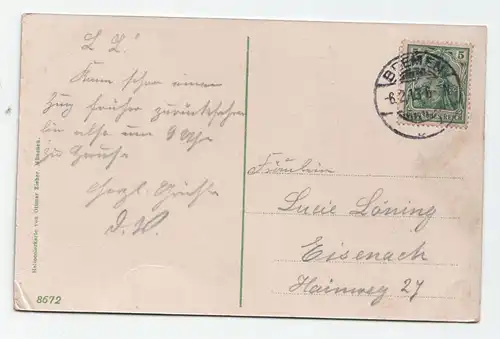 L. L.!
Kann schon einen
Zug früher zurückfahren
bin also um 9 Uhr
zu Hause.
Herzl. Grüße
d. W.
Fräulein
Lucie Löning
Eisenach
Hainweg 27
BREMEN
5
Heliocolorkarte von Ottmar Zieher, München.
8672